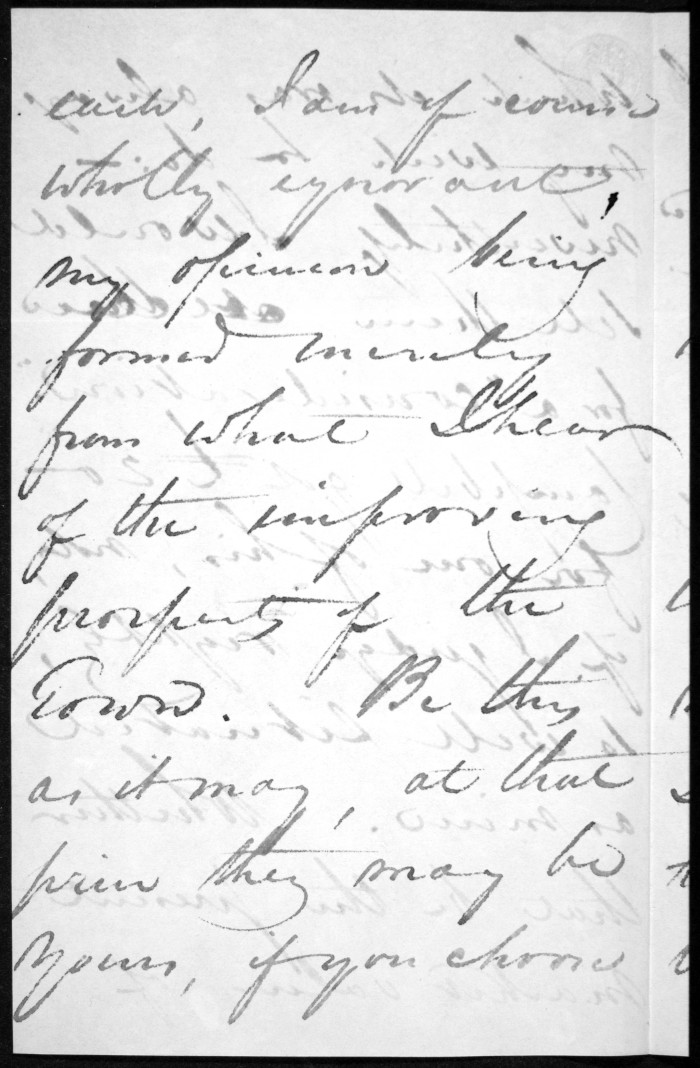 each, I am of course
wholly ignorant,
my opinion being
formed merely
from what I hear
of the improving
prospects of the
Town. Be this
as it may, at that
price they may be
yours, if you choose